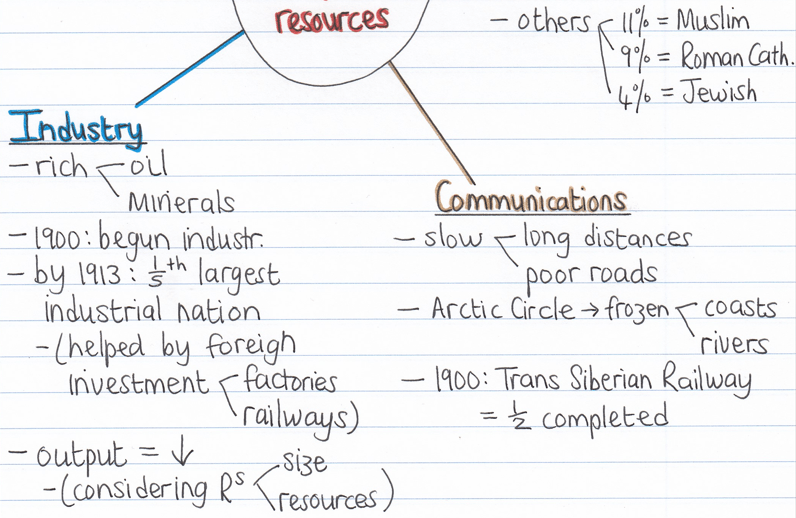 resources
– others 11% = Muslim
9% = Roman Cath.
4% = Jewish
Industry
– rich – oil
Minerals
– 1900: begun industr.
– by 1913: 1/5th largest
industrial nation
– (helped by foreign
investment factories
railways)
– output = ↓
– (considering Rs size
resources)
Communications
– slow – long distances
poor roads
– Arctic Circle → frozen coasts
rivers
– 1900: Trans Siberian Railway
= 1/2 completed